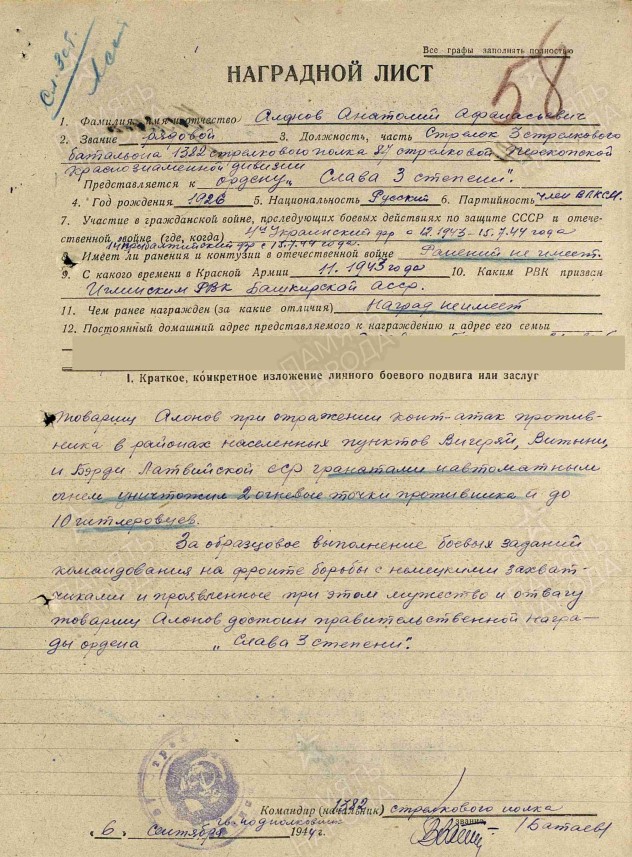 Сл. 3 ст.
58
Все графы заполнять полностью
НАГРАДНОЙ ЛИСТ
1. Фамилия, имя и отчество Алонов Анатолий Афанасьевич
2. Звание рядовой 3. Должность, часть Стрелок 3 стрелкового
батальона 1382 стрелкового полка 87 стрелковой Перекопской
Краснознаменной дивизии
Представляется к ордену „Слава 3 степени".
4. Год рождения 1926 5. Национальность Русский 6. Партийность член ВЛКСМ.
7. Участие в гражданской войне, последующих боевых действиях по защите СССР и отече-
ственной войне (где, когда) 4й Украинский фр с 12.1943 - 15.7.44 года
1й Прибалтийский фр с 15.7.44 года.
8. Имеет ли ранения и контузии в отечественной войне Ранений не имеет.
9. С какого времени в Красной Армии 11. 1943 года 10. Каким РВК призван
Иглинским РВК Башкирской АССР.
11. Чем ранее награжден (за какие отличия) Наград не имеет
12. Постоянный домашний адрес представляемого к награждению и адрес его семьи
I. Краткое, конкретное изложение личного боевого подвига или заслуг
Товарищ Алонов при отражении конт-атак против-
ника в районах населенных пунктов Вигеряй, Витыни,
и Бэрди Латвийской ССР гранатами и автоматным
огнем уничтожил 2 огневые точки противника и до
10 гитлеровцев.
За образцовое выполнение боевых заданий
командования на фронте борьбы с немецкими захват-
чиками и проявленные при этом мужество и отвагу
товарищ Алонов достоин правительственной Награ-
ды ордена „Слава 3 степени".
Командир (начальник) 1382 стрелкового полка
гв. подполковник звание (Батаев)
„6" сентября 1944 г.
ПАМЯТЬ НАРОДА